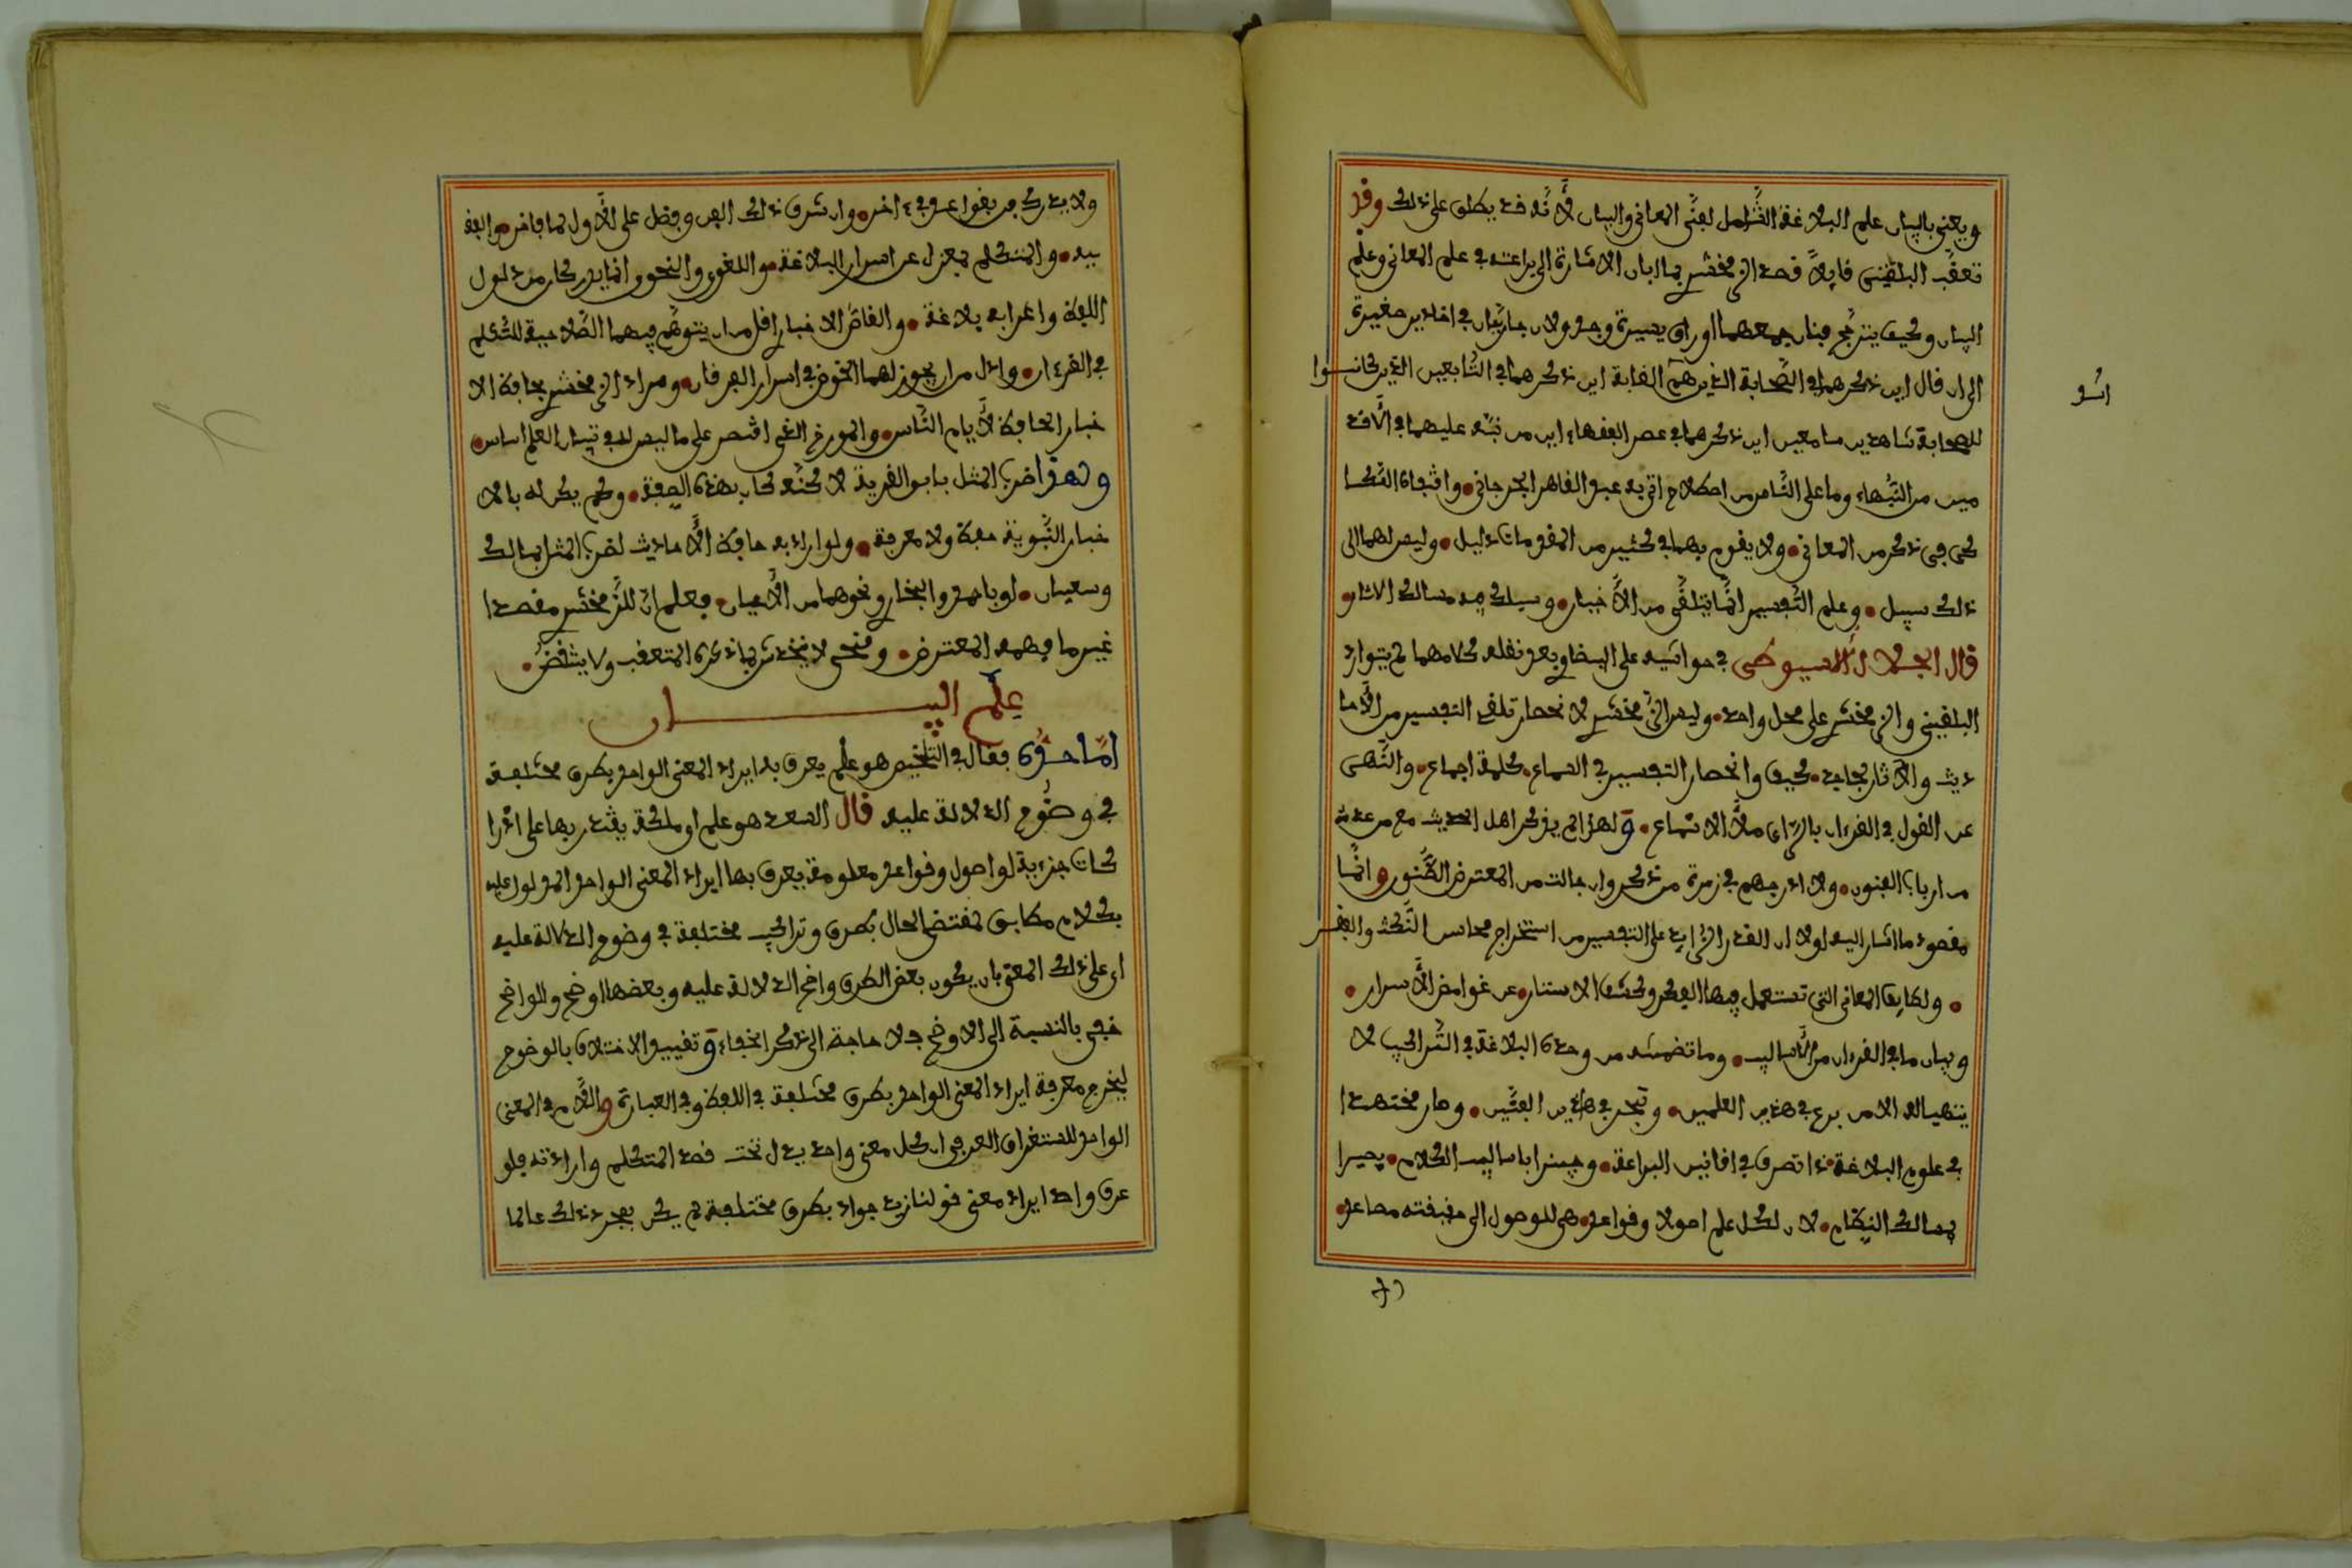 ويعني بالبيان علم البلاغة الشامل لفنَّي المعاني والبيان لأنّه قد يطلق على ذلك وقد
تعقّب البلقيني قايلاً قصد الزمخشري بما ابان الاشارة الى براعته في علم المعاني وعلم
البيان وكيف يترجح فنان جمعهما اوراق يسيرة وجدولان جاريان في اخادير صغيرة
الى ان قال اين ذكرهما في الصّحابة الذين هم الغاية اين ذكرهما في التّابعين الذين كانوا
للصحابة شاهدين سامعين اين ذكرهما في عصر الفقهاء اين من نبّه عليهما في الأقد
اسو
مين من النّبهاء وما على النّاس من اصطلاح اتى به عبد القاهر الجرجاني واقتفاه السّكا
كي في ذكر من المعاني ولا يقوم بهما في كثير من المقومات دليل وليس لهما الى
ذلك سبيل وعلم التّفسير انّما يتلقّى من الأخبار ويسلك فيه مسالك الاثار و
قال الجلال السيوطي في حواشيه على البيضاوي بعد نقله كلامهما لم يتوارد
البلقيني والزمخشري على محل واحد وليس الزّمخشري لانحصار تلقي التفسير من الأحا
ديث والآثار بجاحد كيف وانحصار التفسير في السماع كلمة اجماع والنّهي
عن القول في القرءان بالرّاي ملأ الاسماع ولهذا لم يذكر اهل الحديث مع من عدّه
من ارباب الفنون ولا ادرجهم في زمرة من ذكر وان جالت من المعترض الظّنون وانّما
مقصوده ما اشار اليه اولا ان القدر الزايد على التفسير من استخراج محاسن النّكت والفقر
ولطايف المعاني التي تستعمل فيها الفكر وكشف الاستار عن غوامض الأسرار
وبيان ما في القرءان من الأساليب وما تضمنته من وجوه البلاغة في التّراكيب لا
يتهيا له الا من برع في هذين العلمين وتبحر في هاذين الفنّين وصار مختصا
في علوم البلاغة ذا تصرف في افانين البراعة وخبيرا باساليب الكلام بصيرا
بمسالك النظام لان لكل علم اصولا وقواعد هي للوصول الى حقيقته مصاعد
ولا يدرك فن بقواعد فن ءاخر وان شرف ذلك الفن وفضل على الأول بما فاخر والفق
يه والمتكلم بمعزل عن اسرار البلاغة واللغوي والنحوي انما يدركان مدلول
اللفظ واعرابه بلاغة والقاصّ الاخباري اقل من ان يتوهّم فيهما الصّلاحية للتّكلم
في القرءان واذل من ان يجوز لهما الخوض في اسرار الفرقان ومراد الزمخشري بحافظ الا
خبار الحافظ لأيام النّاس والمورخ الذي اقتصر على ما ليس له في تبيان العلم اساس
ولهذا ضرب المثل بابن القرية لأنّه كان بهذه الصفة ولم يكن له بالا
خبار النّبوية حفظ ولا معرفة ولو اراد به حافظ الأحاديث لضرب المثل بمالك
وسفيان او باحمد والبخاري ونحوهما من الأعيان فعلم انّ للزّمخشري مقصدا
غير ما فهمه المعترض ومنحى لا يخدش بما ذكره المتعقب ولا ينتقض
علم البيان
امّا حدّه فقال في التلخيص هو علم يعرف به ايراد المعنى الواحد بطرق مختلفة
في وضوح الدلالة عليه قال السعد هو علم اي ملكة يقتدر بها على ادرا
كات جزءية او اصول وقواعد معلومة يعرف بها ايراد المعنى الواحد المدلول عليه
بكلام مطابق لمقتضى الحال بطرق وتراكيب مختلفة في وضوح الدلالة عليه
اي على ذلك المعنى بان يكون بعض الطرق واضح الدلالة عليه وبعضها اوضح والواضح
خفي بالنسبة الى الاوضح فلا حاجة الى ذكر الخفاء وتقييد الاختلاف بالوضوح
ليخرج معرفة ايراد المعنى الواحد بطرق مختلفة في اللفظ وفي العبارة واللّام في المعنى
الواحد للاستغراق العرفي اي كل معنى واحد يدخل تحت قصد المتكلم وارادته فلو
عرف واحد ايراد معنى قولنا زيد جواد بطرق مختلفة لم يكن بمجرد ذلك عالما